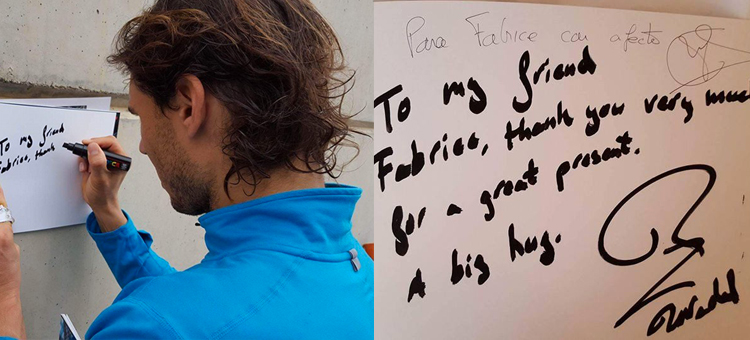 To my friend
Fabrice, thank
Para Fabrice con afecto
To my friend
Fabrice, thank you very muc
for a great present.
A big hug.